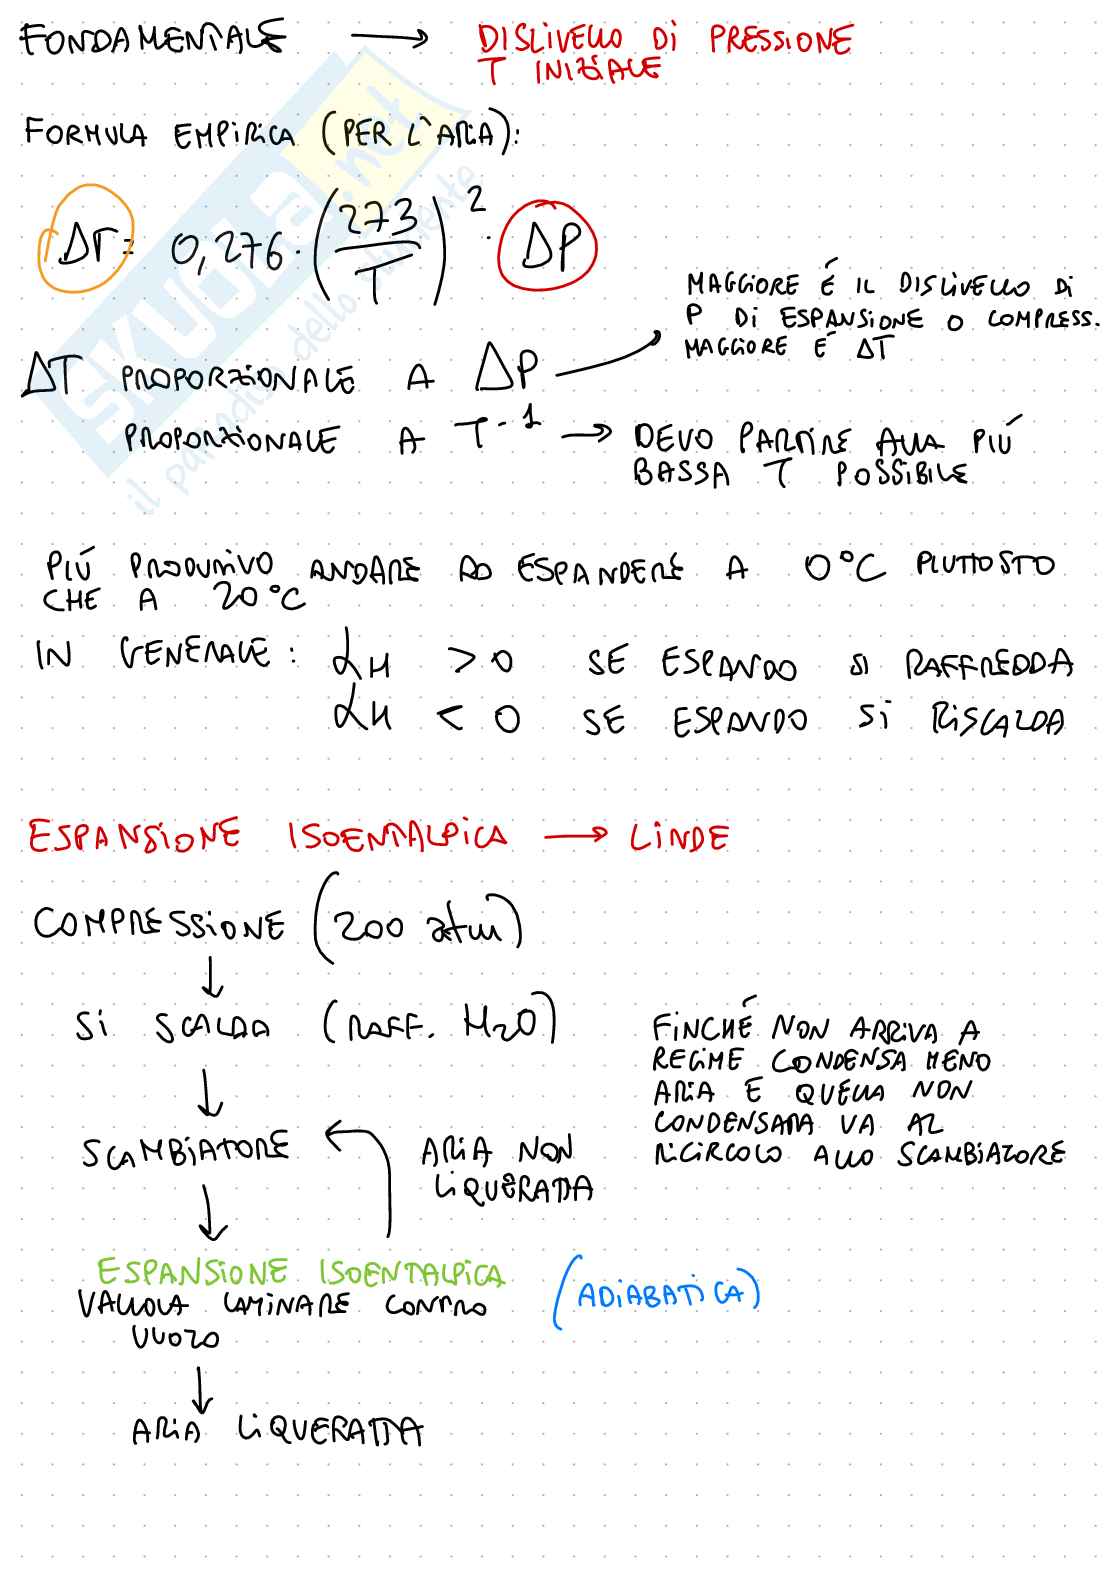 FONDAMENTALE → DISLIVELLO DI PRESSIONE
T INIZIALE
FORMULA EMPIRICA (PER L'ARIA):
ΔT = 0,276 · (273/T)² · ΔP
MAGGIORE É IL DISLIVELLO DI
P DI ESPANSIONE O COMPRESS.
MAGGIORE É ΔT
ΔT PROPORZIONALE A ΔP
PROPORZIONALE A T⁻¹ → DEVO PARTIRE ALLA PIÚ
BASSA T POSSIBILE
PIÚ PRODUTTIVO ANDARE AD ESPANDERE A 0°C PIUTTOSTO
CHE A 20°C
IN GENERALE: αH > 0 SE ESPANDO SI RAFFREDDA
αH < 0 SE ESPANDO SI RISCALDA
ESPANSIONE ISOENTALPICA → LINDE
COMPRESSIONE (200 atm)
↓
SI SCALDA (RAFF. H2O)
↓
SCAMBIATORE
ARIA NON
LIQUEFATTA
FINCHÉ NON ARRIVA A
REGIME CONDENSA MENO
ARIA E QUELLA NON
CONDENSATA VA AL
RICIRCOLO ALLO SCAMBIATORE
↓
ESPANSIONE ISOENTALPICA (ADIABATICA)
VALVOLA LAMINARE CONTRO
VUOTO
↓
ARIA LIQUEFATTA
SKUOLA.net
il paradiso dello studente